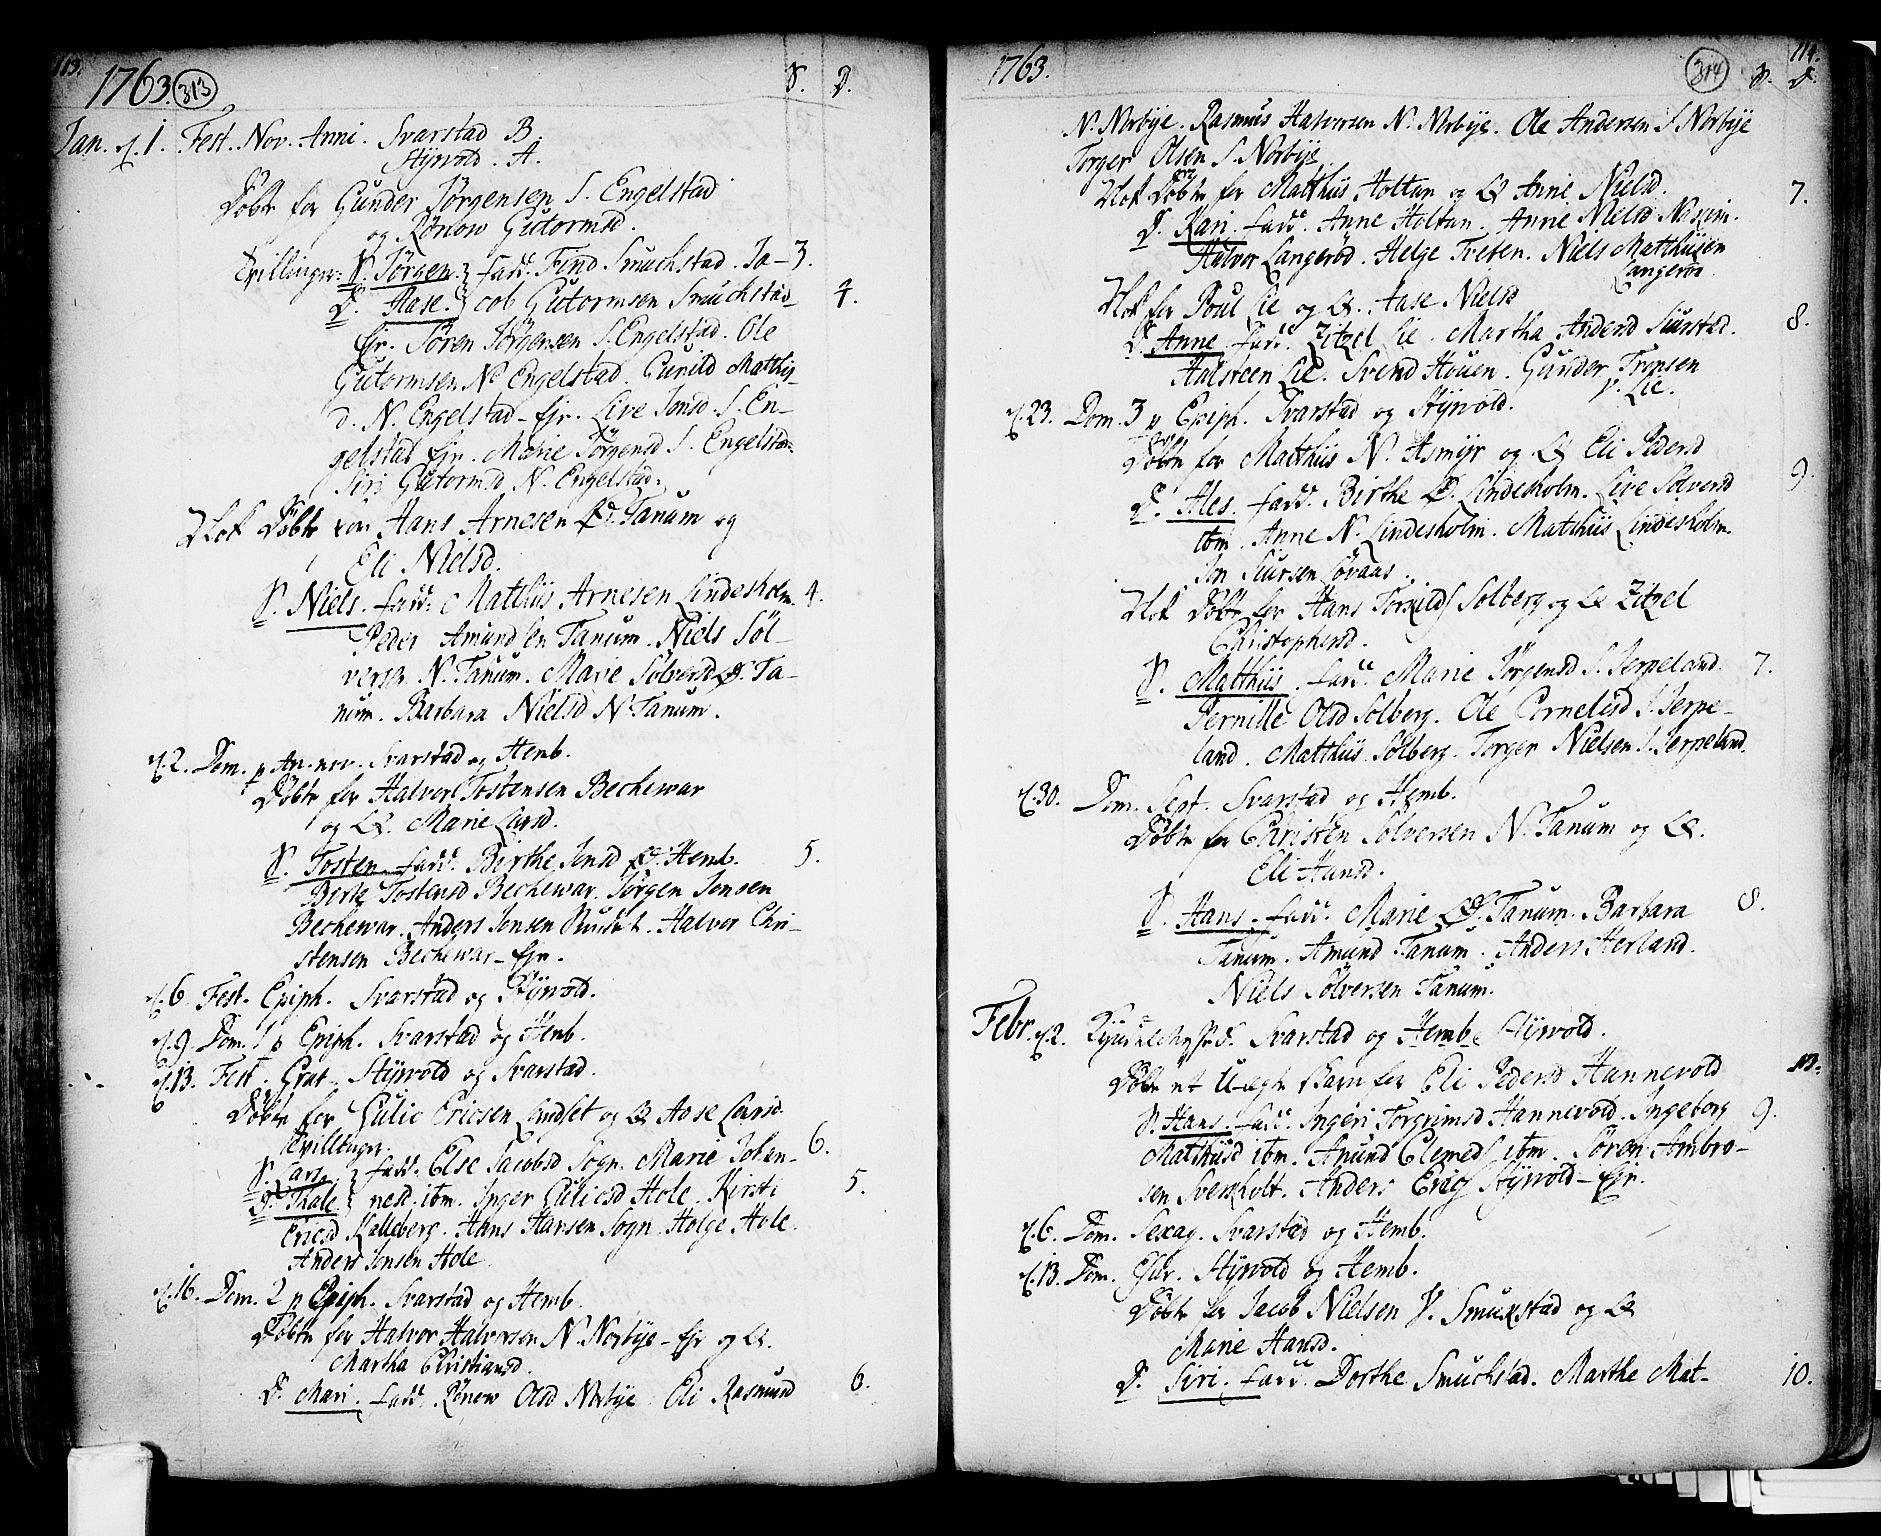 113.
1763. 313
S. D.
Jan. d. 1. Fest. Nov. Anni. Svarstad B.
Styrvold. A.
Döbt for Gunder Jörgensen S. Engelstad
og Rönow Gutormsd.
Tvillinger: S. Jörgen. fadd. Find Smuchstad. Ja- 3.
D. Aase. cob Gutormsen Smuchstad 4.
Ejr. Sören Jörgensen S. Engelstad. Ole
Gutormsen N. Engelstad. Gunild Matthis-
d. N. Engelstad - Ejr. Live Jonsd. S. En-
gelstad Ejr. Marie Jörgensd S. Engelstad
Siri Gutormsd N. Engelstad.
Nok Döbt for Hans Arnesen Ø. Tanum og
Eli Nielsd.
S. Niels. fadd. Matthiis Arnesen Lindesholm. 4.
Peder Amundsen Tanum. Niels Söl-
versen N. Tanum. Marie Sölversd Ø. Ta-
num. Barbara Nielsd N. Tanum.
d. 2. Dom. p An. nov. Svarstad og Hemb.
Döbt for Halvor Tostensen Bechewar
og Q. Marie Larsd.
S. Tosten. fadd. Birthe Jonsd Ø. Hemb. 5.
Berte Tostensd Bechewar. Jörgen Jonsen
Bechewar. Anders Jonsen. Halvor Chri-
stensen Bechewar - Ejr.
d. 6. Fest. Epiph. Svarstad og Styrvold.
d. 9. Dom. 1 p Epiph. Svarstad og Hemb.
d. 13. Fest. Grat. Styrvold og Svarstad.
Döbt for Gulic Ericsen Landset og Q Aase Larsd.
Tvillinger.
S. Lars. fadd. Else Jacobsd Sogn. Marie Johan- 6.
D. Thale. nesd. ibm. Inger Gulicsd Hole. Kirsti 5.
Ericsd Kalleberg. Hans Hansen Sogn. Holge Hole.
Anders Jonsen Hole.
d. 16. Dom. 2 p Epiph. Svarstad og Hemb.
Döbt for Halvor Halvorsen N. Norbye - Ejr og Q.
Martha Christiansd.
D. Mari. fadd. Rönow Olsd Norbye. Eli Rasmusd 6.
1763.
314 114.
S. D.
N. Norbye. Rasmus Halvorsen N. Norbye. Ole Andersen S. Norbye
Torger Olsen S. Norbye.
Nok Döbt for Matthiis Holtan og Q Anne Nielsd. 7.
D. Kari. fadd. Anne Holtan. Anne Nielsd.
Halvor Langeröd. Helge Treten. Niels Matthiisen
Langeröd.
Nok for Poul Lie og Q. Aase Nielsd
D. Anne. fadd. Zitzel Lie. Martha Andersd. 8.
Halsteen Lie. Svend Houen. Gunder Tronsen
Lie.
d. 23. Dom. 3 p Epiph. Svarstad og Styrvold.
Döbt for Matthiis N. Asmyr og Q Eli Pedersd
D. Ales. fadd. Birthe Ø. Lindesholm. Live Sölversd 9.
ibm. Anne N. Lindesholm. Matthiis Lindesholm.
Jon Siursen Lövaas.
Nok Döbt for Hans Torkilds Solberg og Q Zitzel
Christophersd.
S. Matthiis. fadd. Marie Jörgensd S. Jerpeland. 7.
Pernille Olsd Solberg. Ole Cornelisd S. Jerpe-
land. Matthiis Solberg. Torger Nielsen S. Jerpeland.
d. 30. Dom. Sept. Svarstad og Hemb.
Döbt for Christen Sölversen N. Tanum og Q.
Eli Hansd.
S. Hans. fadd. Marie Ø. Tanum. Barbara 8.
Tanum. Amund Tanum. Anders Herland.
Niels Sölversen Tanum.
Febr. d. 2. Svarstad og Hemb. Styrvold.
Döbt et Uægte Barn for Eli Pedersd Hannevold
S. Hans. fadd. Ingeri Torgrimsd Hannevold. Ingeborg 9.
Matthiisd ibm. Amund Clemeds ibm. Sören Ambro-
sen Sverkholt. Anders Erics Styrvold - Ejr.
d. 6. Dom. Sexag. Svarstad og Hemb.
d. 13. Dom. Esto. Styrvold og Hemb.
Döbt for Jacob Nielsen V. Smukstad og Q
Marie Hansd.
D. Siri. fadd. Dorthe Smuchstad. Marthe Mat- 10.